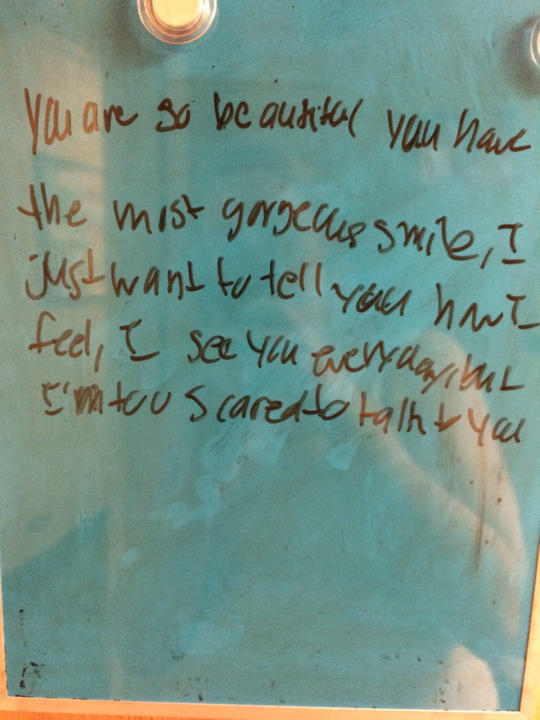 You are so beautiful you have
the most gorgeous smile, I
just want to tell you how I
feel, I see you everyday, but
I'm too scared to talk to you